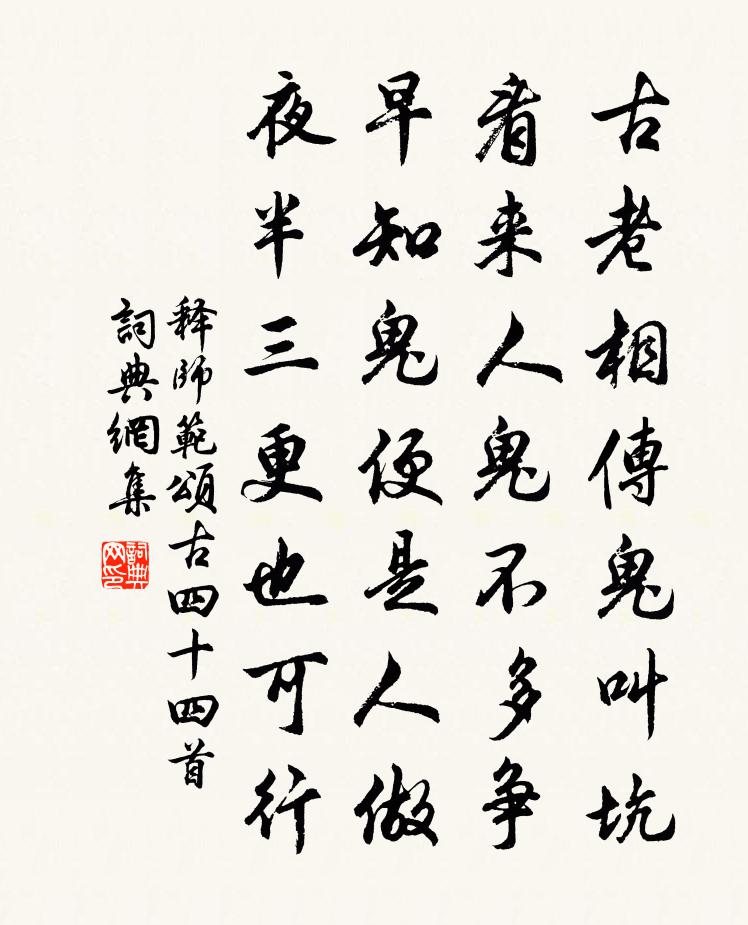 古老相傳鬼叫坑
看来人鬼不多争
早知鬼便是人做
夜半三更也可行
释師範頌古四十四首
詞典網集
詞典網印